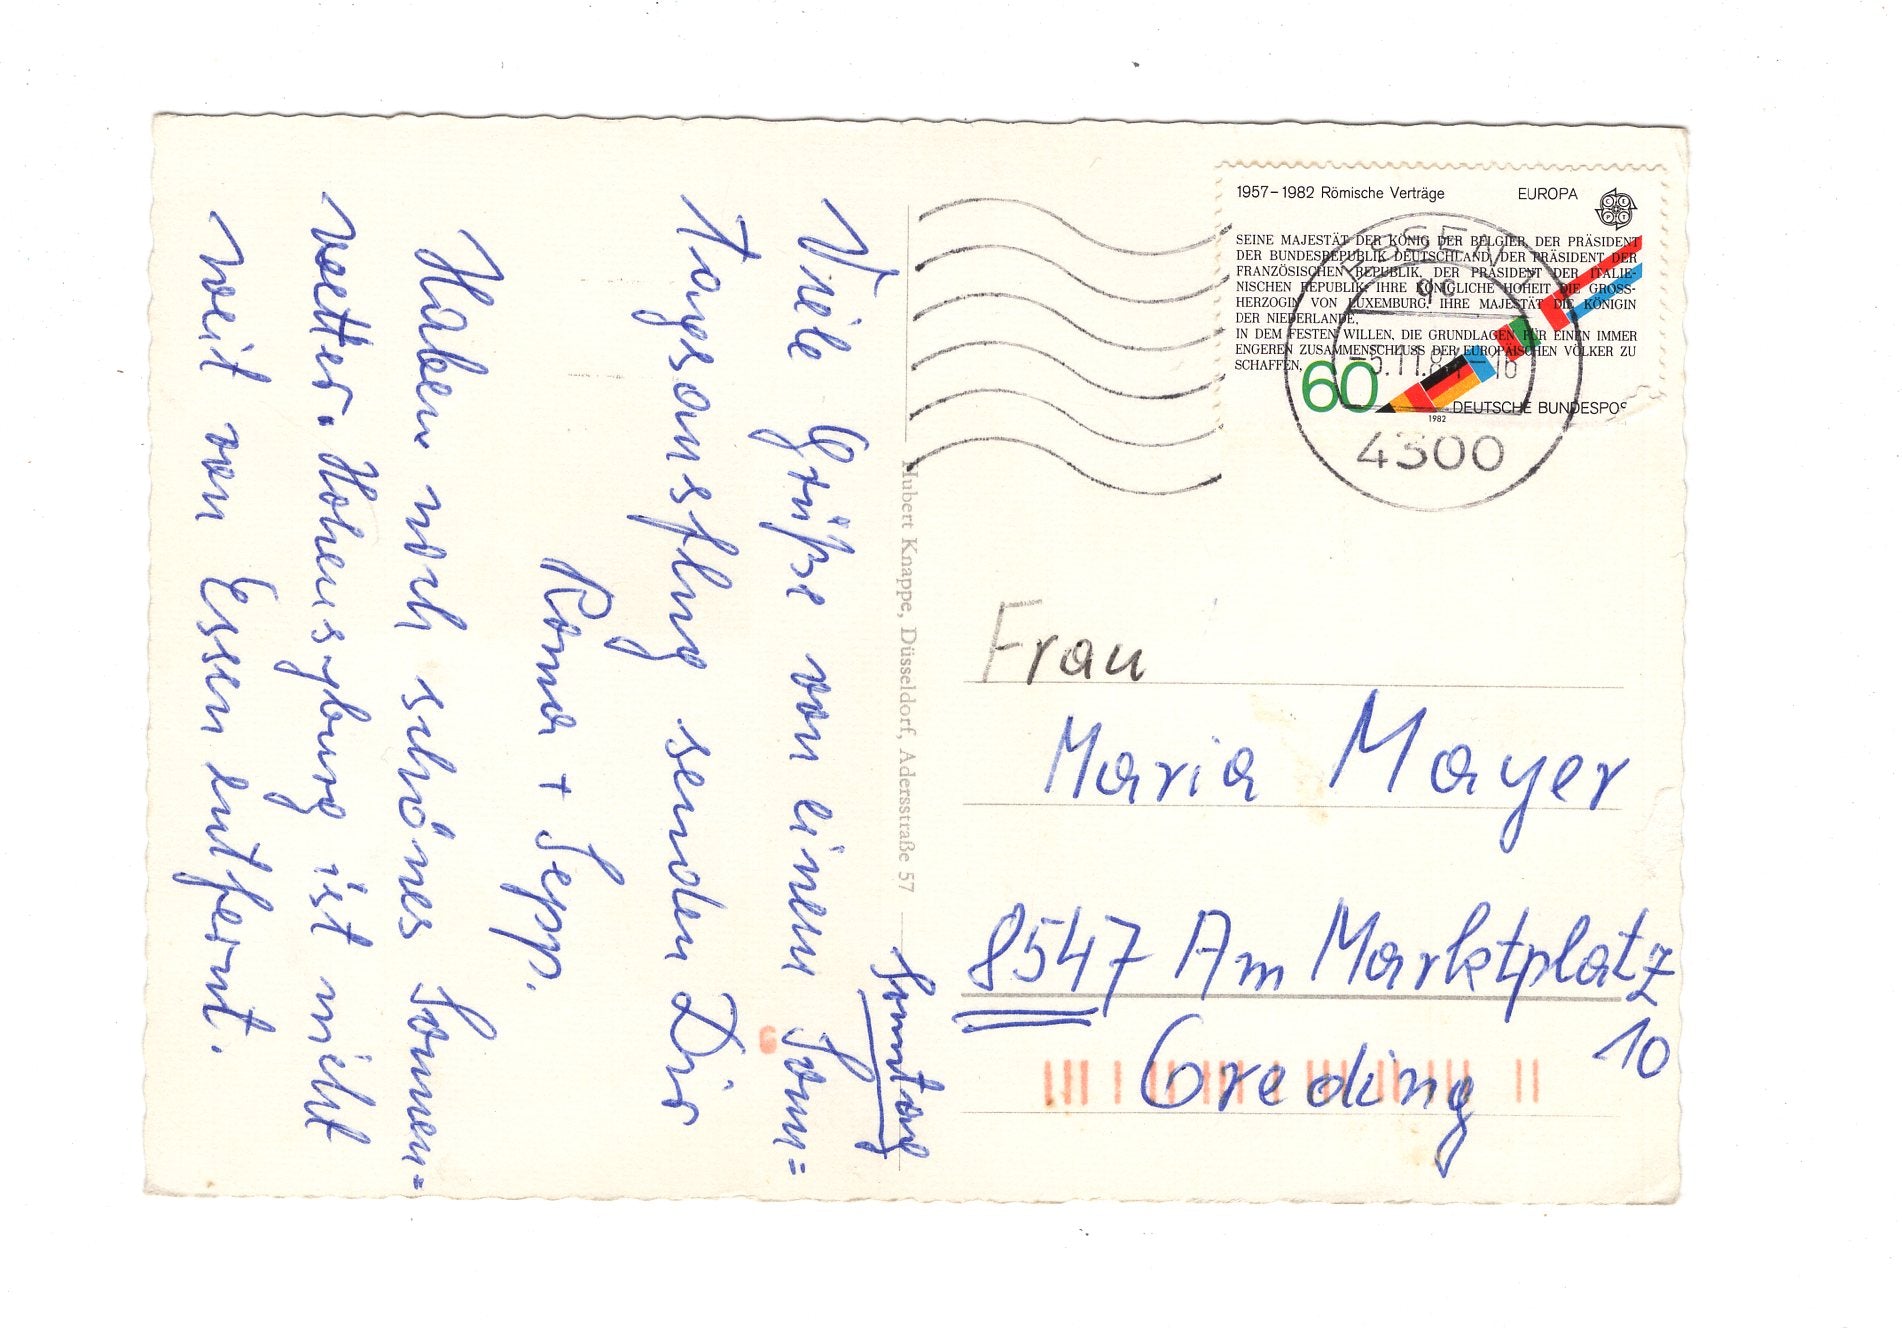 Sonntag
Viele Grüße von einem Sonn=
tagsausflug senden Dir
Roma + Sepp.
Haben noch schönes Sonnen=
wetter. Hohensyburg ist nicht
weit von Essen entfernt.
Hubert Knappe, Düsseldorf, Adersstraße 57
1957–1982 Römische Verträge EUROPA
CEPT
SEINE MAJESTÄT DER KÖNIG DER BELGIER, DER PRÄSIDENT
DER BUNDESREPUBLIK DEUTSCHLAND, DER PRÄSIDENT DER
FRANZÖSISCHEN REPUBLIK, DER PRÄSIDENT DER ITALIE-
NISCHEN REPUBLIK, IHRE KÖNIGLICHE HOHEIT DIE GROSS-
HERZOGIN VON LUXEMBURG, IHRE MAJESTÄT DIE KÖNIGIN
DER NIEDERLANDE,
IN DEM FESTEN WILLEN, DIE GRUNDLAGEN FÜR EINEN IMMER
ENGEREN ZUSAMMENSCHLUSS DER EUROPÄISCHEN VÖLKER ZU
SCHAFFEN,
60
DEUTSCHE BUNDESPOS
1982
ESSEN 1
-5.11.8 -16
4300
Frau
Maria Mayer
8547 Am Marktplatz
10
Greding
6